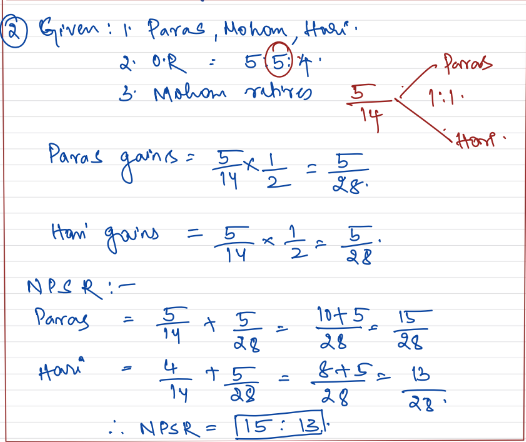 ② Given : 1. Paras, Mohan, Hari.
2. O.R : 5 : 5 : 4.
3. Mohan retires 5/14 Paras 1:1. Hari.
Paras gains = 5/14 × 1/2 = 5/28.
Hari gains = 5/14 × 1/2 = 5/28.
NPSR :-
Paras = 5/14 + 5/28 = 10+5/28 = 15/28
Hari = 4/14 + 5/28 = 8+5/28 = 13/28.
∴ NPSR = 15 : 13.